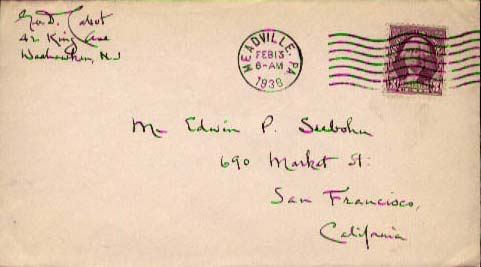 Geo. D. Cabot
42 King Ave
Weehawken, N.J
MEADVILLE, PA.
FEB 13
6-AM
1936
3
Mr Edwin P. Seebohm
690 Market St.
San Francisco,
California